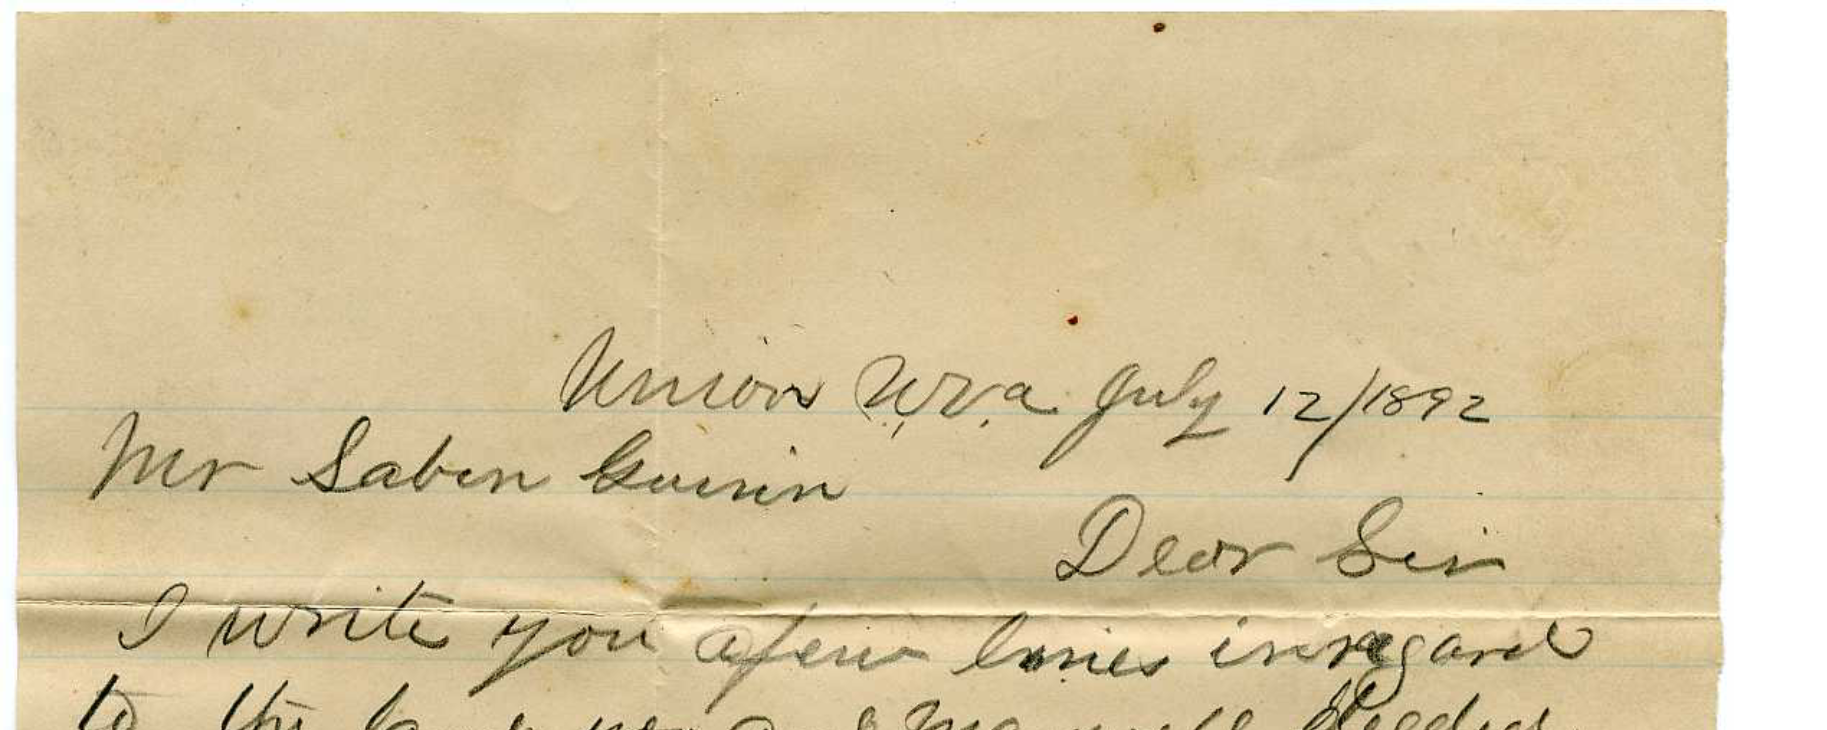 Union W.Va. July 12/1892
Mr Saben Guinn
Dear Sir
I write you a few lines in regard
to the land you and